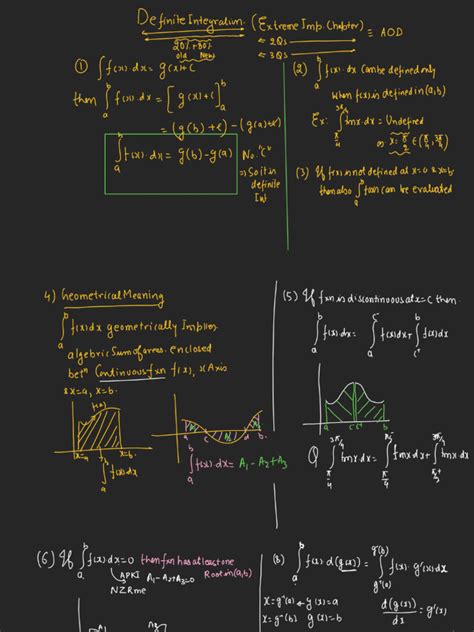 Definite Integration. (Extreme Imp. Chapter) ≡ AOD
20% + 80%
old New
2Qs
3Qs
(1) ∫f(x).dx = g(x)+C
then ∫_a^b f(x).dx = [g(x)+C]_a^b
= (g(b)+c) - (g(a)+c)
∫_a^b f(x).dx = g(b)-g(a)
No "C"
⇒ So it is
definite
Int
(2) ∫_a^b f(x).dx can be defined only
when f(x) is defined in (a,b)
Ex: ∫_{π/4}^{3π/4} tanx.dx = Undefined
as x=π/2 ∈ (π/4, 3π/4)
(3) If f(x) is not defined at x=a & x=b
then also ∫_a^b f(x)dx can be evaluated
4) Geometrical Meaning
∫_a^b f(x)dx geometrically Implies
algebric Sum of areas enclosed
betn Continuous fxn f(x), x Axis
& x=a, x=b.
f(x)
x=a
x=b.
∫_a^b f(x)dx
a c d b
∫_a^b f(x).dx = A1 - A2 + A3
(5) If fxn is discontinuous at x=c then
∫_a^b f(x)dx = ∫_a^{c-} f(x)dx + ∫_{c+}^b f(x)dx
a c b
Q ∫_{π/4}^{3π/4} tanx.dx = ∫ tanx dx + ∫ tanx.dx
(6) If ∫_a^b f(x)dx=0 then fxn has atleast one
Root in (a,b)
APKI A1-A2+A3=0
NZRme
(8) ∫_a^b f(x).d(g(x)) = ∫ f(x).g'(x)dx
x=g-1(a) ← g(x)=a
x=g-1(b) ← g(x)=b
d(g(x))/dx = g'(x)